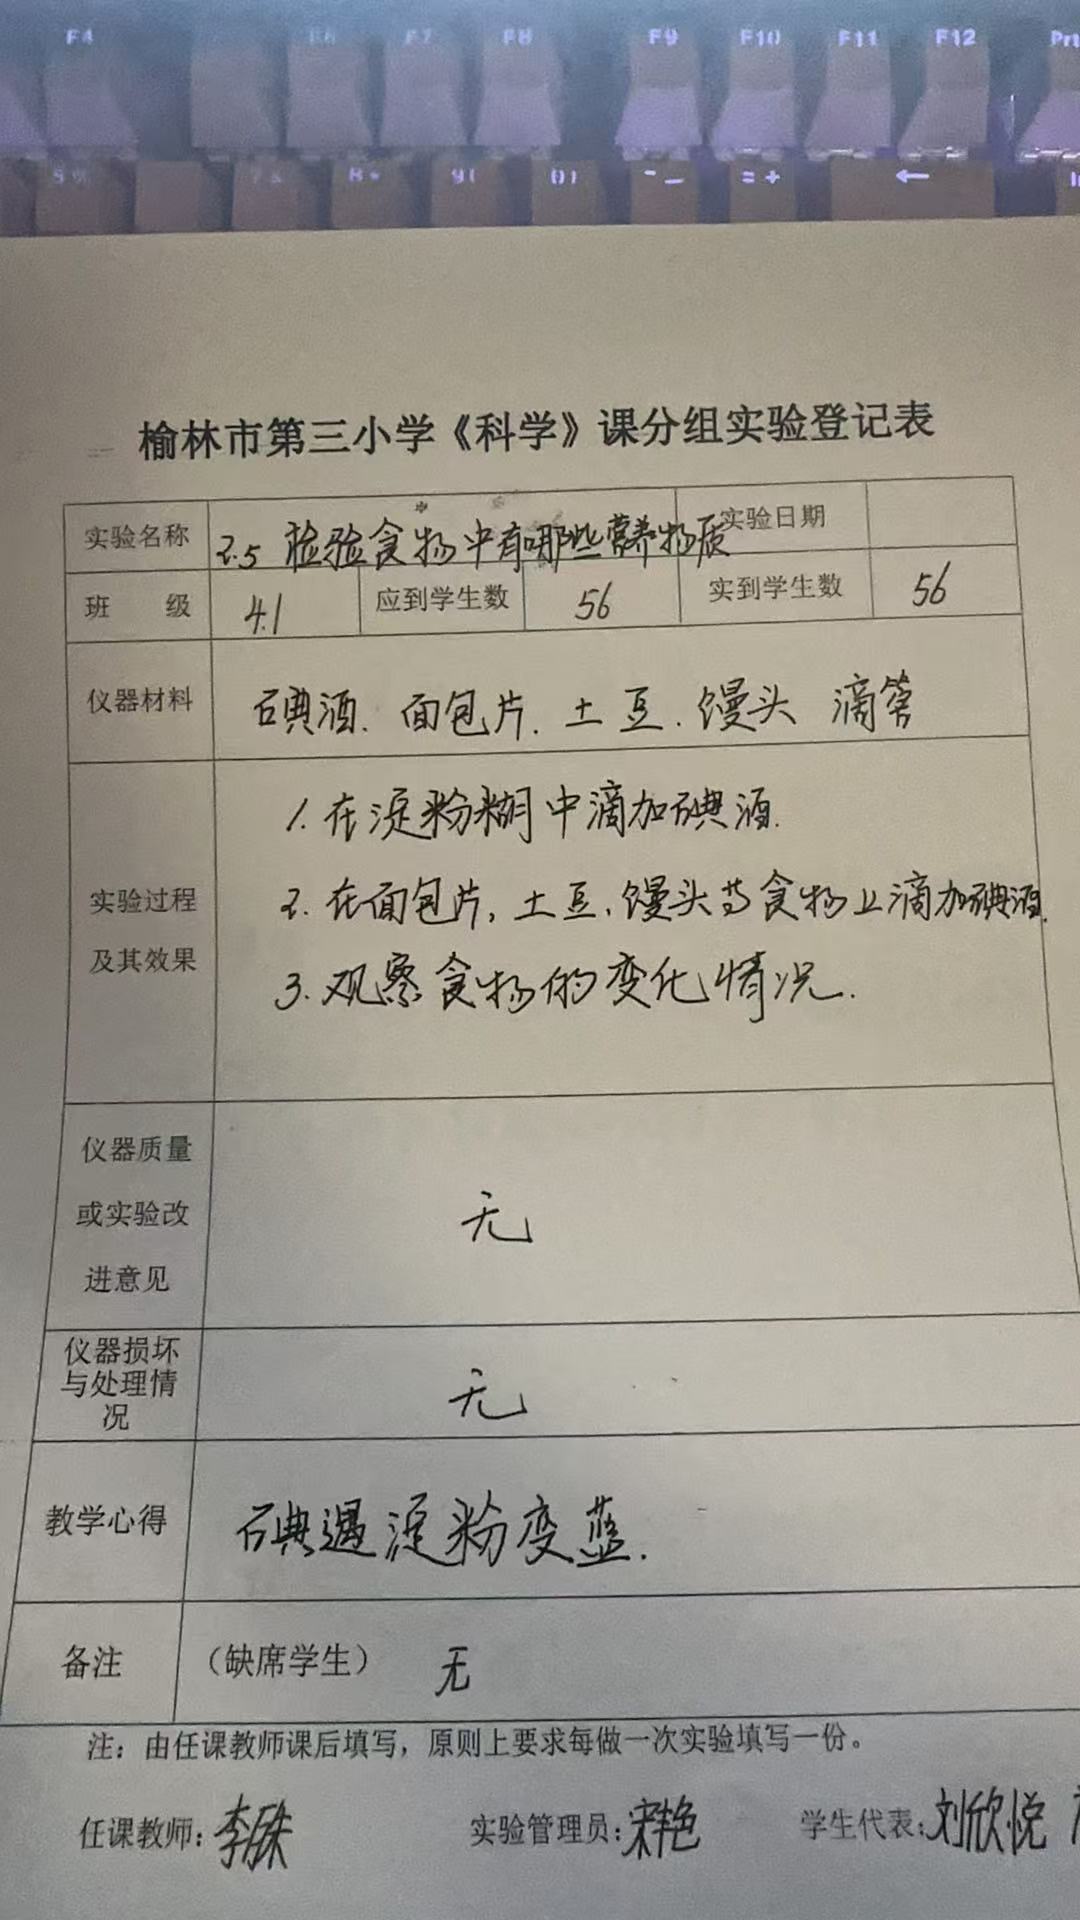 F4 F6 F7 F8 F9 F10 F11 F12 Prt
5% 7& 8* 9( 0) -_ =+ ←
榆林市第三小学《科学》课分组实验登记表
实验名称 2.5 检验食物中有哪些营养物质 实验日期
班 级 4.1 应到学生数 56 实到学生数 56
仪器材料 碘酒. 面包片. 土豆. 馒头 滴管
1. 在淀粉糊中滴加碘酒.
实验过程 2. 在面包片, 土豆, 馒头等食物上滴加碘酒.
及其效果 3. 观察食物的变化情况.
仪器质量
或实验改 无
进意见
仪器损坏
与处理情 无
况
教学心得 碘遇淀粉变蓝.
备注 (缺席学生) 无
注：由任课教师课后填写，原则上要求每做一次实验填写一份。
任课教师: 李 实验管理员: 宋艳 学生代表: 刘欣悦